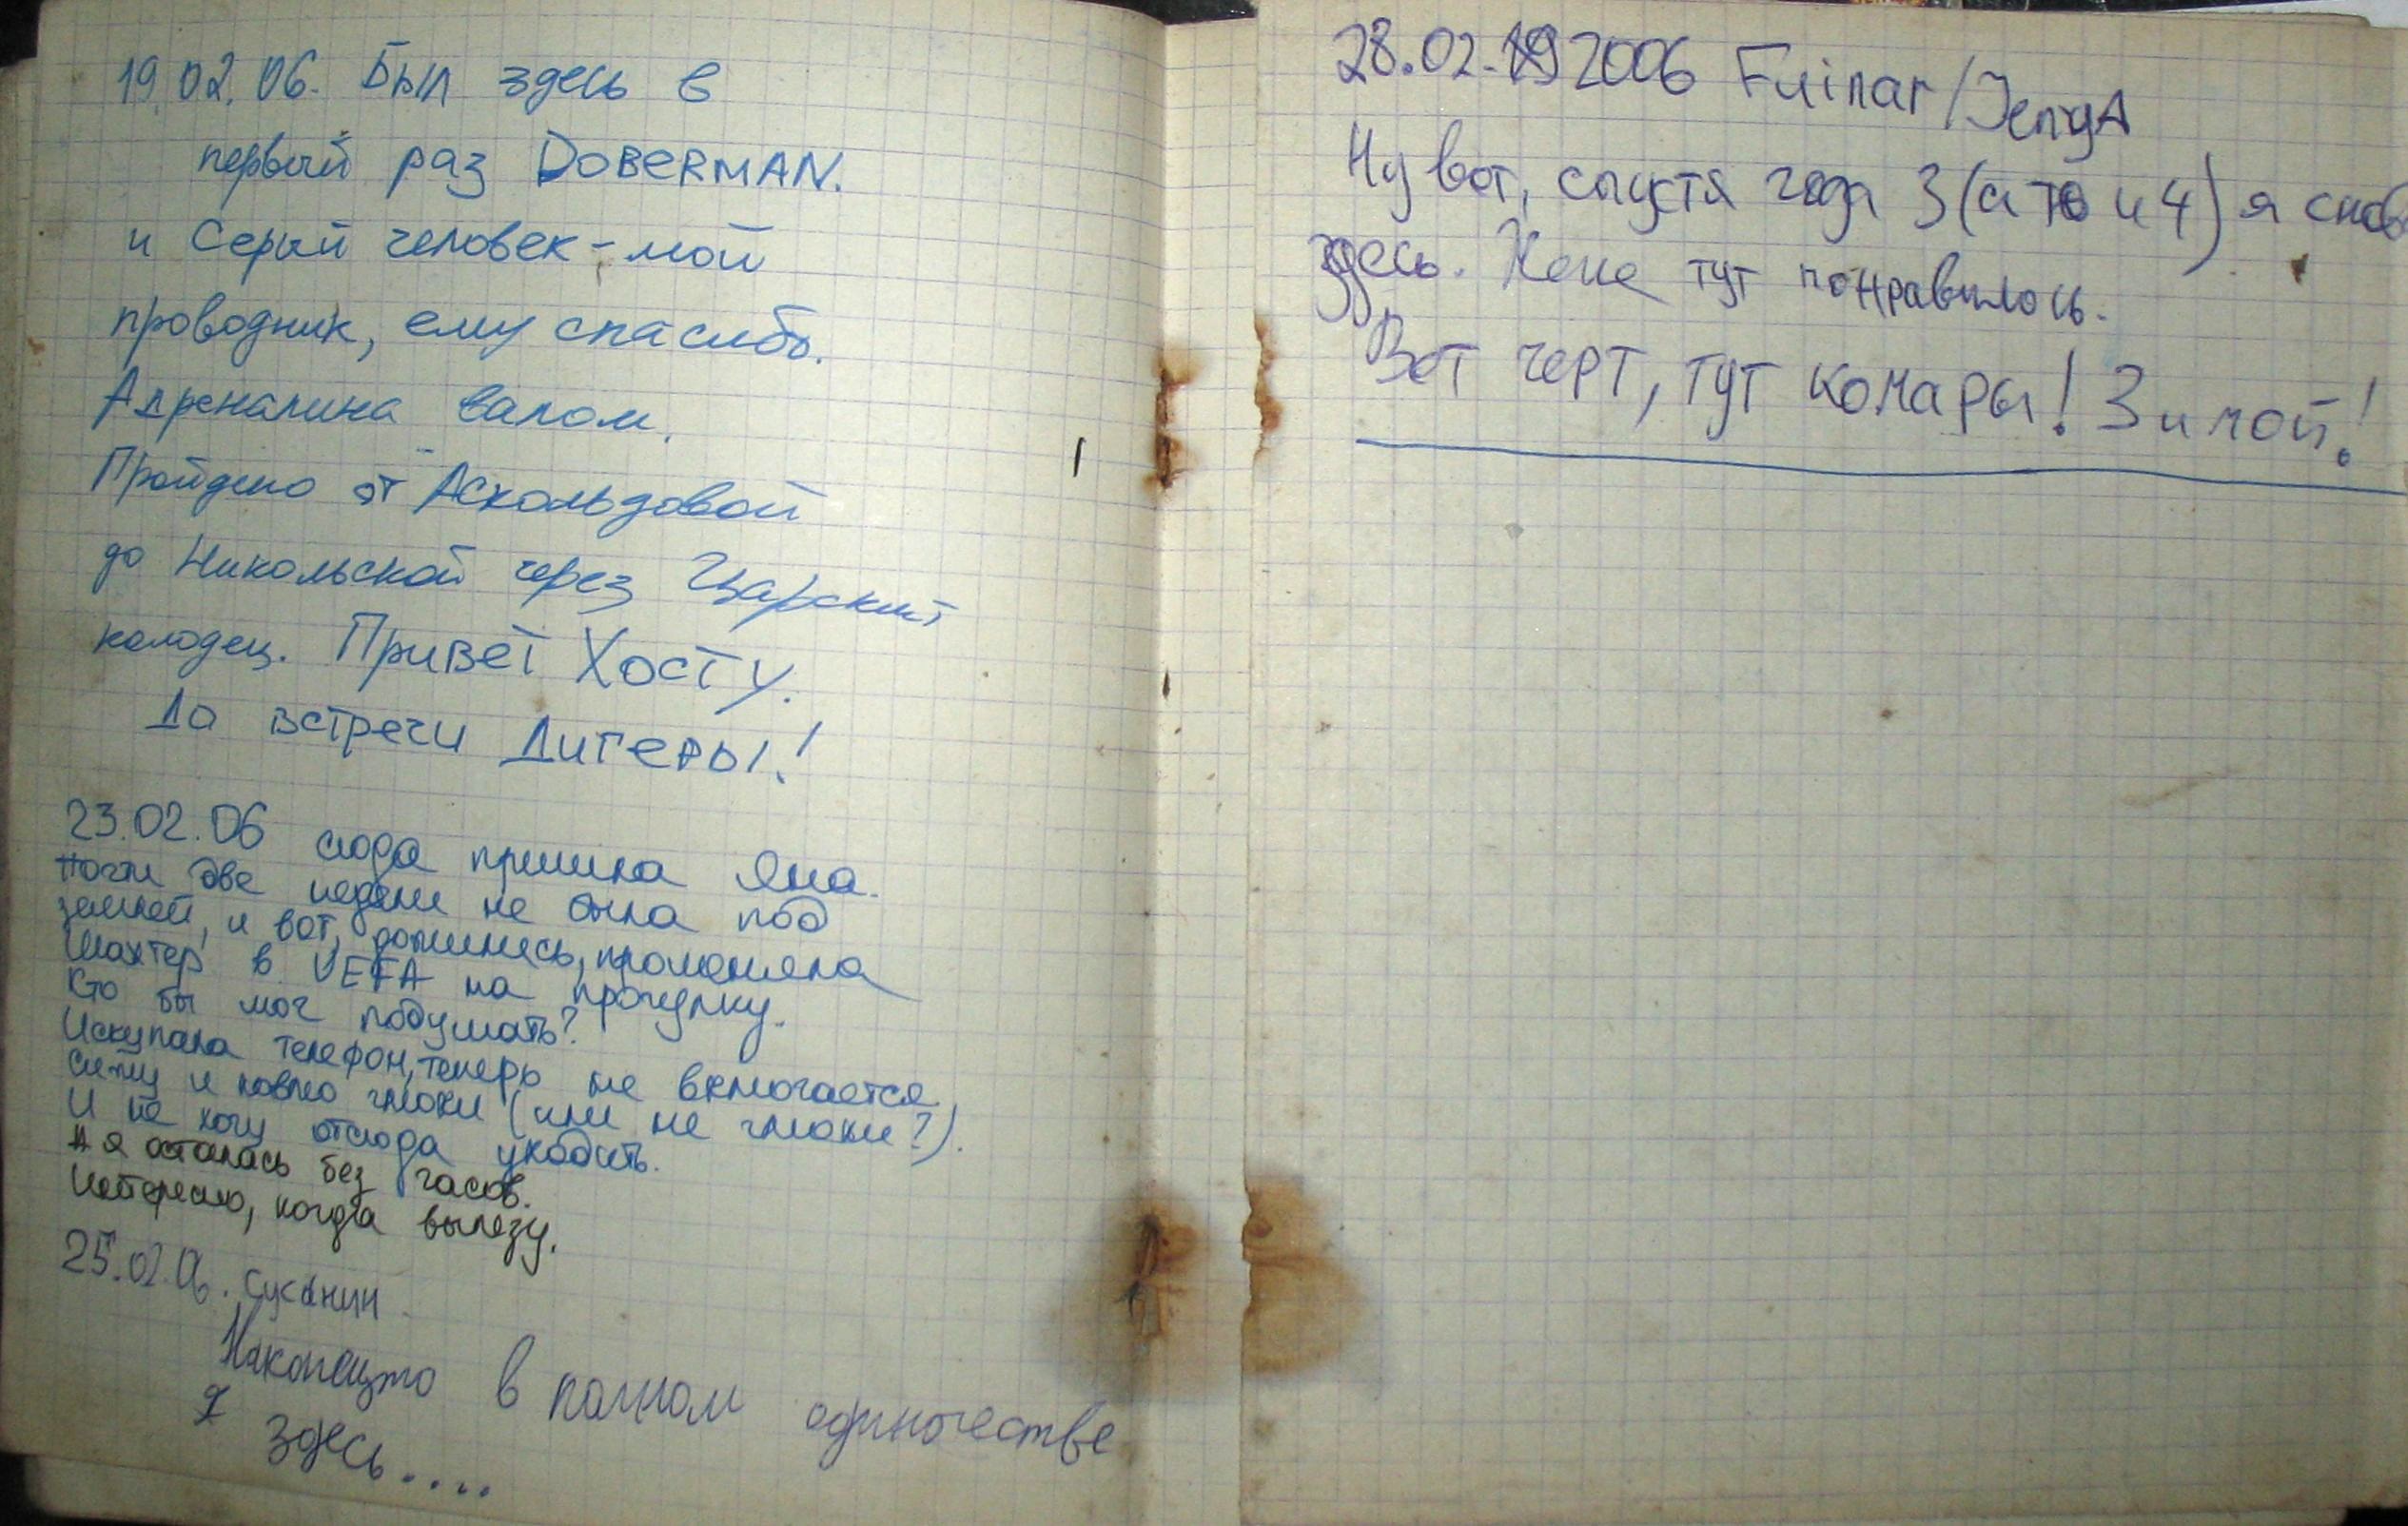 19.02.06. Был здесь в
первый раз DOBERMAN.
и Серый человек - мой
проводник, ему спасибо.
Адреналина валом.
Пройдено от Аскольдовой
до Никольской через Царский
колодец. Привет Хосту.
До встречи Дигеры!
23.02.06 сюда пришла Яна.
Почти две недели не была под
землей, и вот, дожились, променяла
Шахтер в UEFA на прогулку.
Кто бы мог подумать?
Искупала телефон, теперь не включается
Сижу и ловлю глюки (или не глюки?).
И не хочу отсюда уходить.
А я осталась без часов.
Интересно, когда вылезу.
25.02.06. Сусанин
Наконецто в полном одиночестве
я здесь....
28.02. 2006 Fuinar/JenyA
Ну вот, спустя года 3 (а то и 4) я снов
здесь. Жене тут понравилось.
Вот черт, тут комары! Зимой!